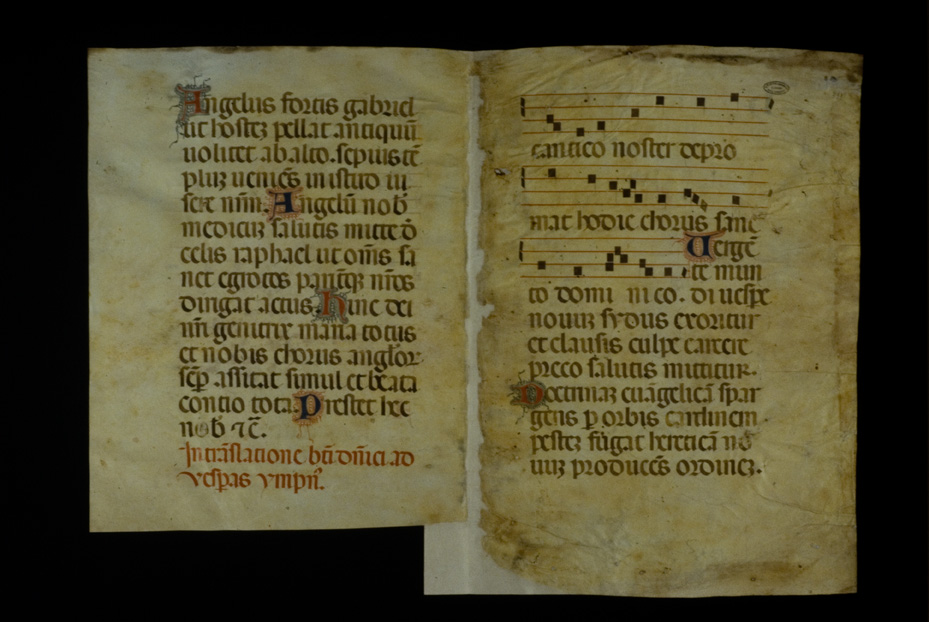 Angelus fortis gabriel
ut hostez pellat antiquū
uolitet ab alto. sepius tē
pluz ueniēs in istud iu
sere nrm. Angelū nob
mediciz salutis mitte d̄
celis raphael ut om̄s sa
net egrotos pariterqz nr̄os
dirigat actus. Hinc dei
nr̄i genitrix maria totus
et nobis chorus anglor
sēp assitat simul et beata
contio tota. Prestet hec
nob ⁊c̄.
In trāslatione bt̄i dn̄ici ad
vesperas ympn̄.
cantico noster depro
mat hodie chorus sanc
Uergē
te mun
to domi ni co. di uespe
nouuz sydus exoritur
et clausis culpe carcere
preco salutis mittitur.
Doctrinaz euāgelicā spar
gens p orbis cardinem
pestez fugat hereticā no
uuz producēs ordinez.